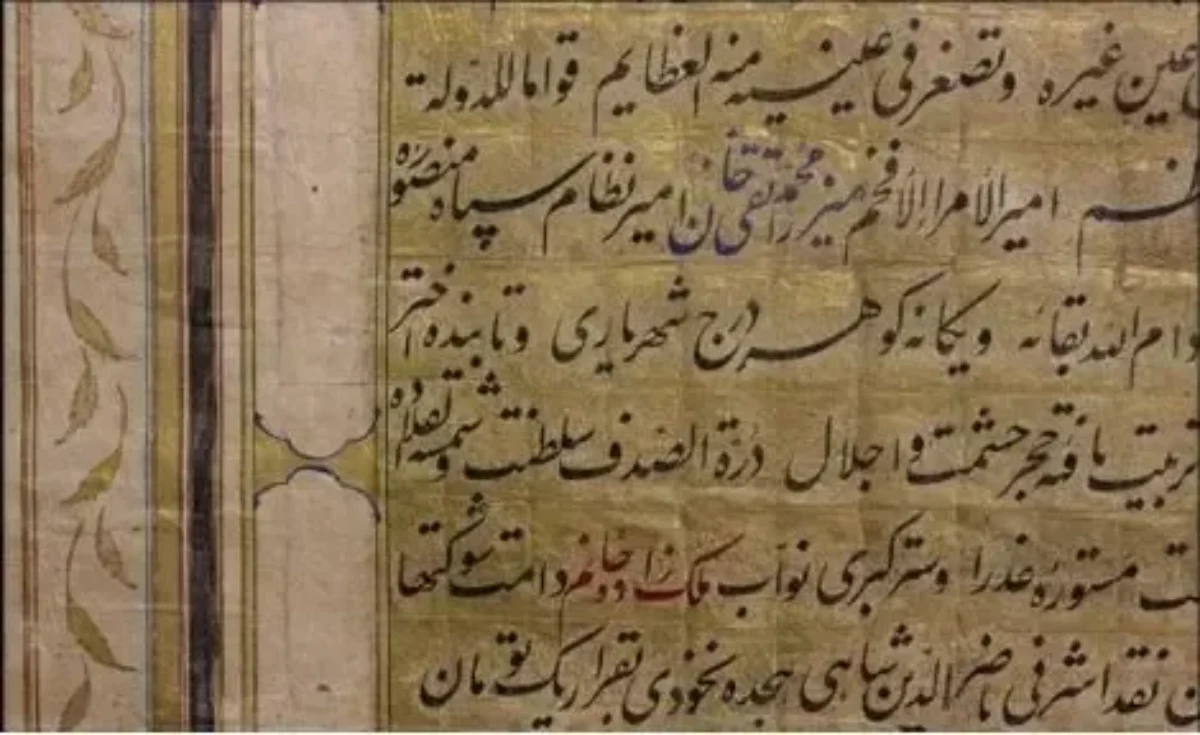 عین غیره وتصغر فی عینیه منه العظایم قواما للدولة
امیر الامراء الافخم میرزا محمد تقی خان امیر نظام سپاه منصوره
دام الله بقائه ویکانه کوهر درج شهریاری وتابنده اختر
تربیت یافته حجر حشمت واجلال درة الصدف سلطنت وشمسة القلاده
مستوره عذرا وستر کبری نواب ملک زاده خانم دامت شوکتها
نقد اشرفی ناصر الدین شاهی هجده نخودی بقرار یک تومان